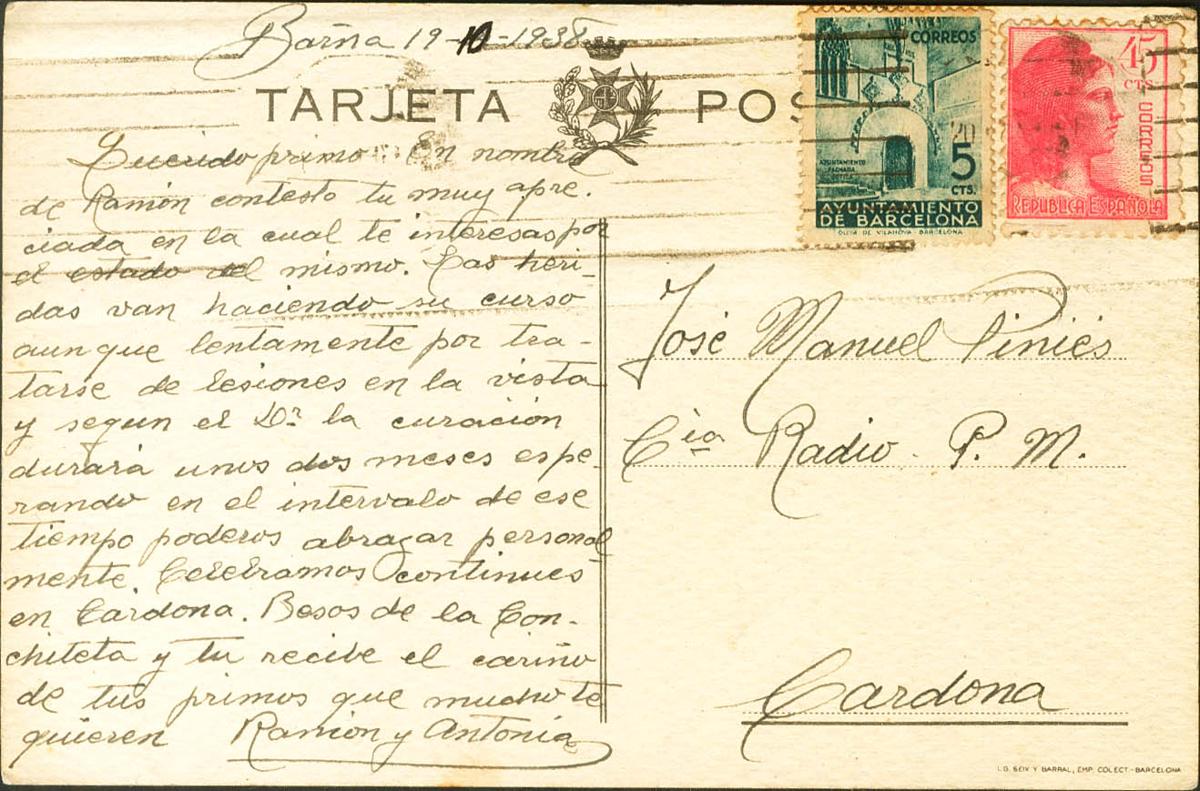 Barña 19-10-1938
TARJETA POS
CORREOS
AYUNTAMIENTO
FACHADA
GÓTICA
5
CTS.
AYUNTAMIENTO
DE BARCELONA
OLIVA DE VILANOVA - BARCELONA
45
CTS
CORREOS
REPUBLICA ESPAÑOLA
Querido primo En nombre
de Ramón contesto tu muy apre-
ciada en la cual te interesas por
el estado del mismo. Las heri-
das van haciendo su curso
aunque lentamente por tra-
tarse de lesiones en la vista
y segun el Dr. la curación
durará unos dos meses espe-
rando en el intervalo de ese
tiempo poderos abrazar personal
mente. Celebramos continues
en Cardona. Besos de la Con-
chiteta y tu recibe el cariño
de tus primos que mucho te
quieren Ramón y Antonia
José Manuel Piniés
Cia Radio. P. M.
Cardona
I.G. SEIX Y BARRAL, EMP. COLECT.-BARCELONA